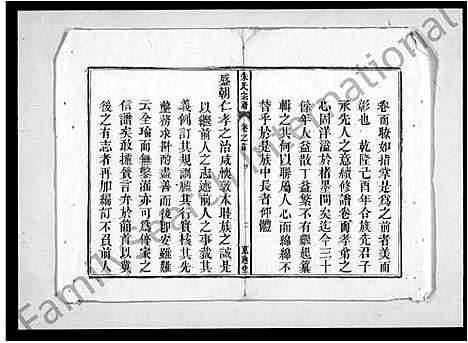 卷而瞭如指掌是為之前者美而
彰也乾隆己酉年合族先君子
承先人之意續修譜卷而孝弟之
心固洋溢於楮墨間矣迄今三十
餘年人益散丁益繁不有繼起纂
輯之其何以聯屬人心而綿綿不
替乎於是族中長者仰體
朱氏宗譜
卷之首
二
盛朝仁孝之治咸懷敦本睦族之誠是
以繼前人之志述前人之事裁其
義例訂其規訓臚其行實核其先
塋務求斟酌盡善而後即安雖難
云全瑜而無纇瀏亦可為傳家之
信譜矣敢攄聲言弁於簡首以冀
後之有志者再加編訂不召前人
Family Search International